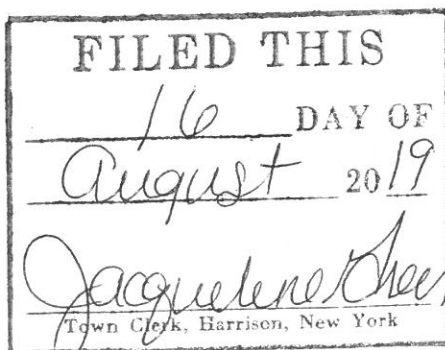 FILED THIS
16 DAY OF
August 2019
Jacqueline Greer
Town Clerk, Harrison, New York